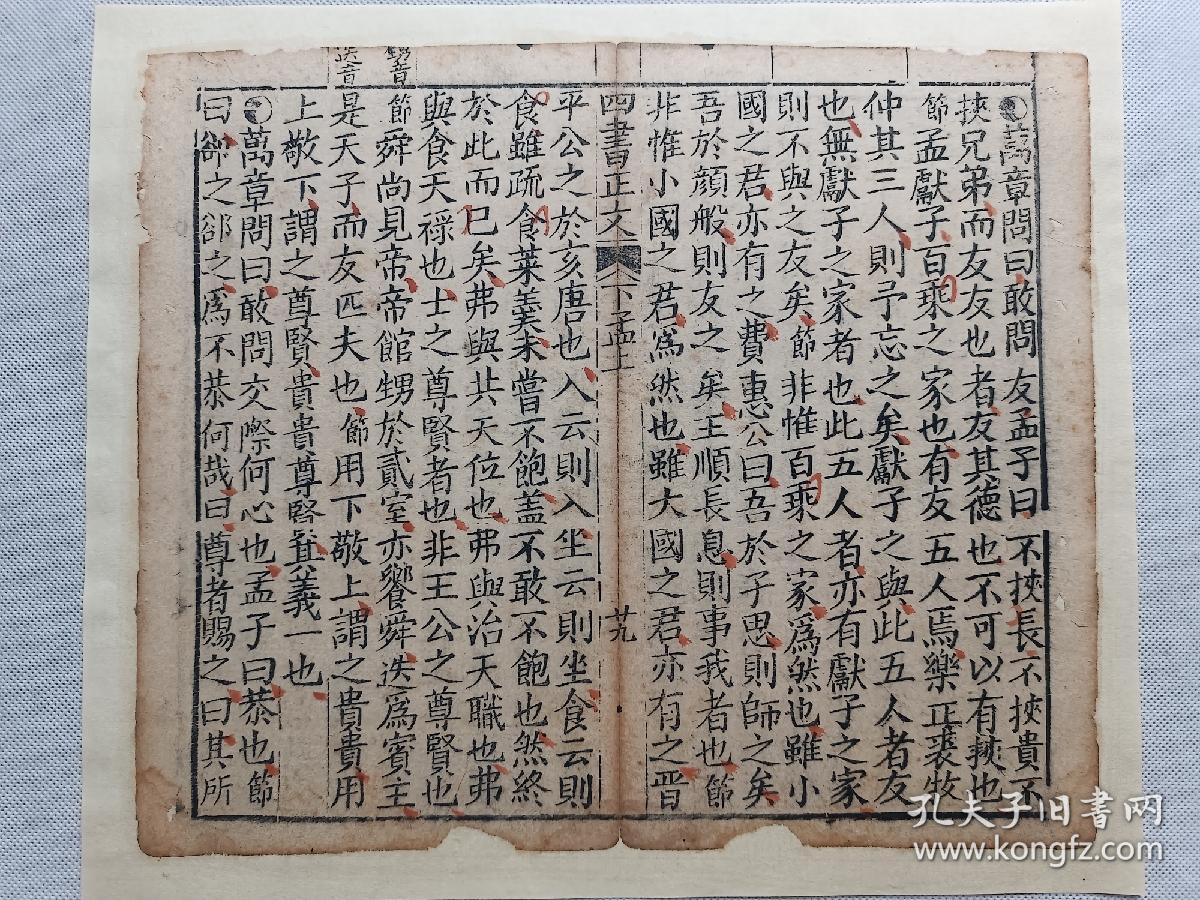 ○萬章問曰敢問友孟子曰不挾長不挾貴不
挾兄弟而友友也者友其德也不可以有挾也
節孟獻子百乘之家也有友五人焉樂正裘牧
仲其三人則予忘之矣獻子之與此五人者友
也無獻子之家者也此五人者亦有獻子之家
則不與之友矣節非惟百乘之家爲然也雖小
國之君亦有之費惠公曰吾於子思則師之矣
吾於顏般則友之矣王順長息則事我者也節
非惟小國之君爲然也雖大國之君亦有之晋
四書正文 下孟上 廿九
平公之於亥唐也入云則入坐云則坐食云則
食雖疏食菜羹未嘗不飽蓋不敢不飽也然終
於此而已矣弗與共天位也弗與治天職也弗
與食天祿也士之尊賢者也非王公之尊賢也
節舜尚見帝帝館甥於貳室亦饗舜迭爲賓主
是天子而友匹夫也節用下敬上謂之貴貴用
上敬下謂之尊賢貴貴尊賢其義一也
○萬章問曰敢問交際何心也孟子曰恭也節
曰郤之郤之爲不恭何哉曰尊者賜之曰其所
孔夫子旧书网
www.kongfz.com